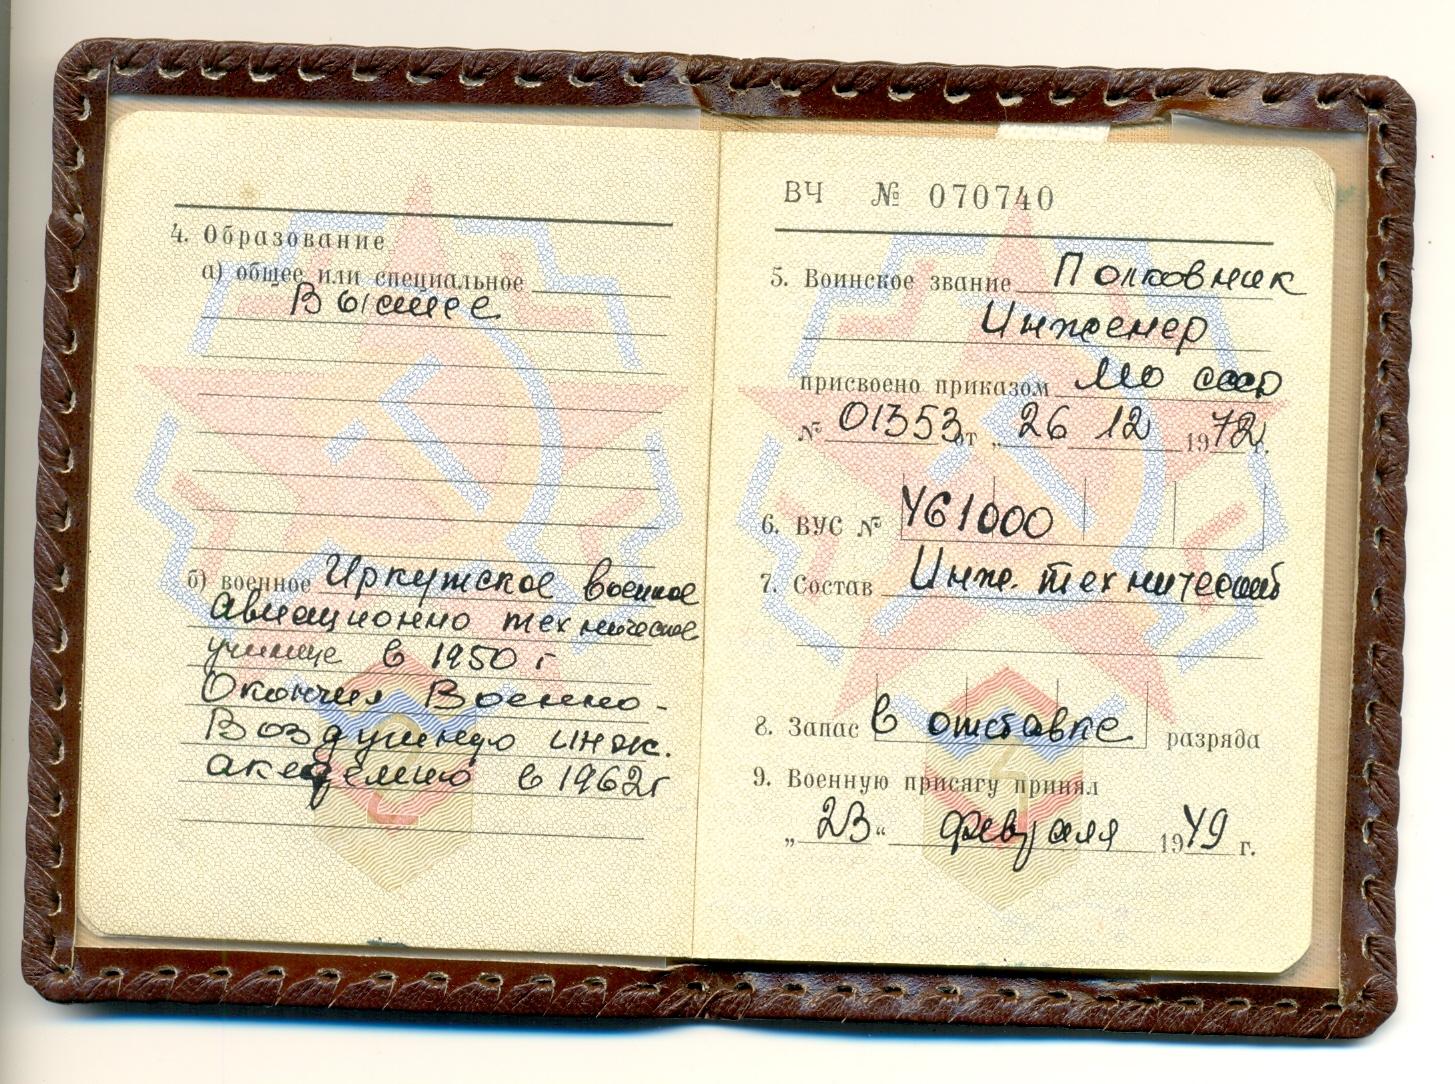 4. Образование
а) общее или специальное
Высшее
б) военное Иркутское военное
авиационно техническое
училище в 1950 г
Окончил Военно-
Воздушную инж.
академию в 1962г
ВЧ № 070740
5. Воинское звание Полковник
Инженер
присвоено приказом МО СССР
№ 01353 от „ 26 12 1972г.
6. ВУС № 461000
7. Состав Инж. технический
8. Запас в отставке разряда
9. Военную присягу принял
„ 23 “ февраля 1949 г.